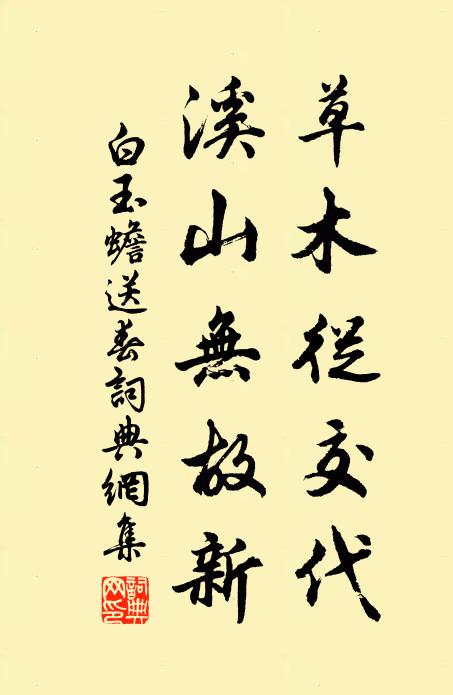 草木從交代
溪山無故新
白玉蟾送春詞典網集
詞典網印